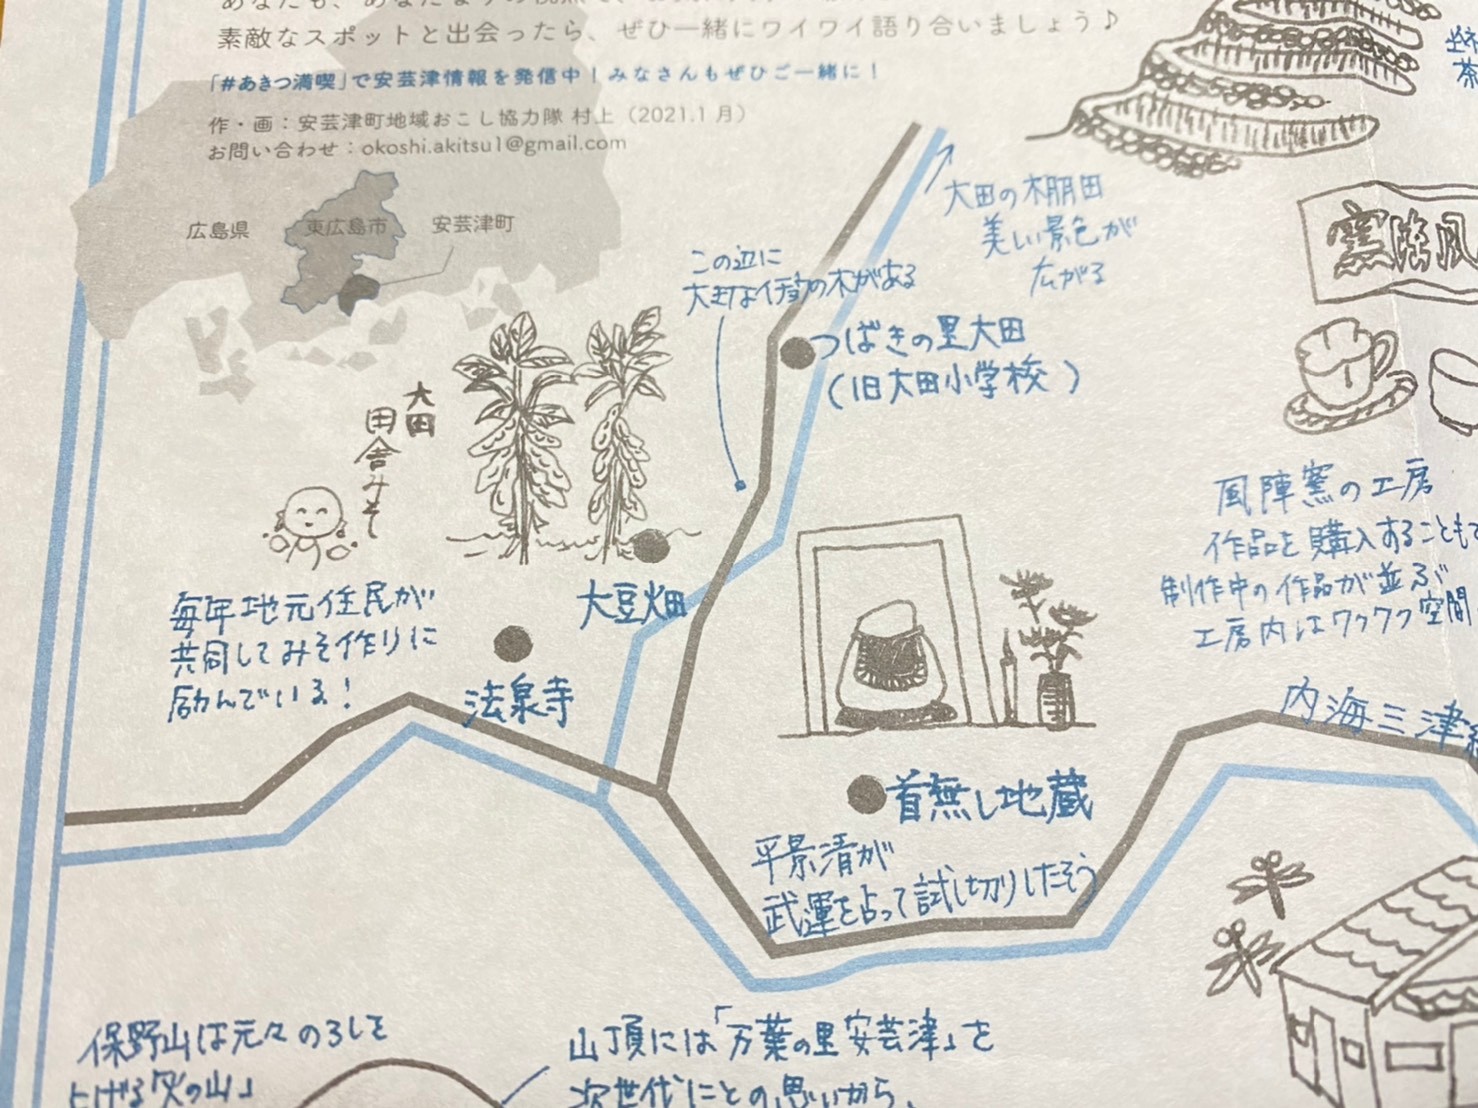 素敵なスポットと出会ったら、ぜひ一緒にワイワイ語り合いましょう♪
「#あきつ満喫」で安芸津情報を発信中！みなさんもぜひご一緒に！
作・画：安芸津町地域おこし協力隊 村上（2021.1月）
お問い合わせ：okoshi.akitsu1@gmail.com
広島県
東広島市
安芸津町
大田の棚田
美しい景色が
広がる
この辺に
大きなイチョウの木がある
つばきの里大田
（旧大田小学校）
大田
田舎みそ
大豆畑
毎年地元住民が
共同してみそ作りに
励んでいる！
法泉寺
風陣窯
風陣窯の工房
作品を購入することも
制作中の作品が並ぶ
工房内はワクワク空間
内海三津線
首無し地蔵
平景清が
武運を占って試し切りしたそう
保野山は元々のろしを
上げる「火の山」
山頂には「万葉の里安芸津」を
次世代にとの思いから、